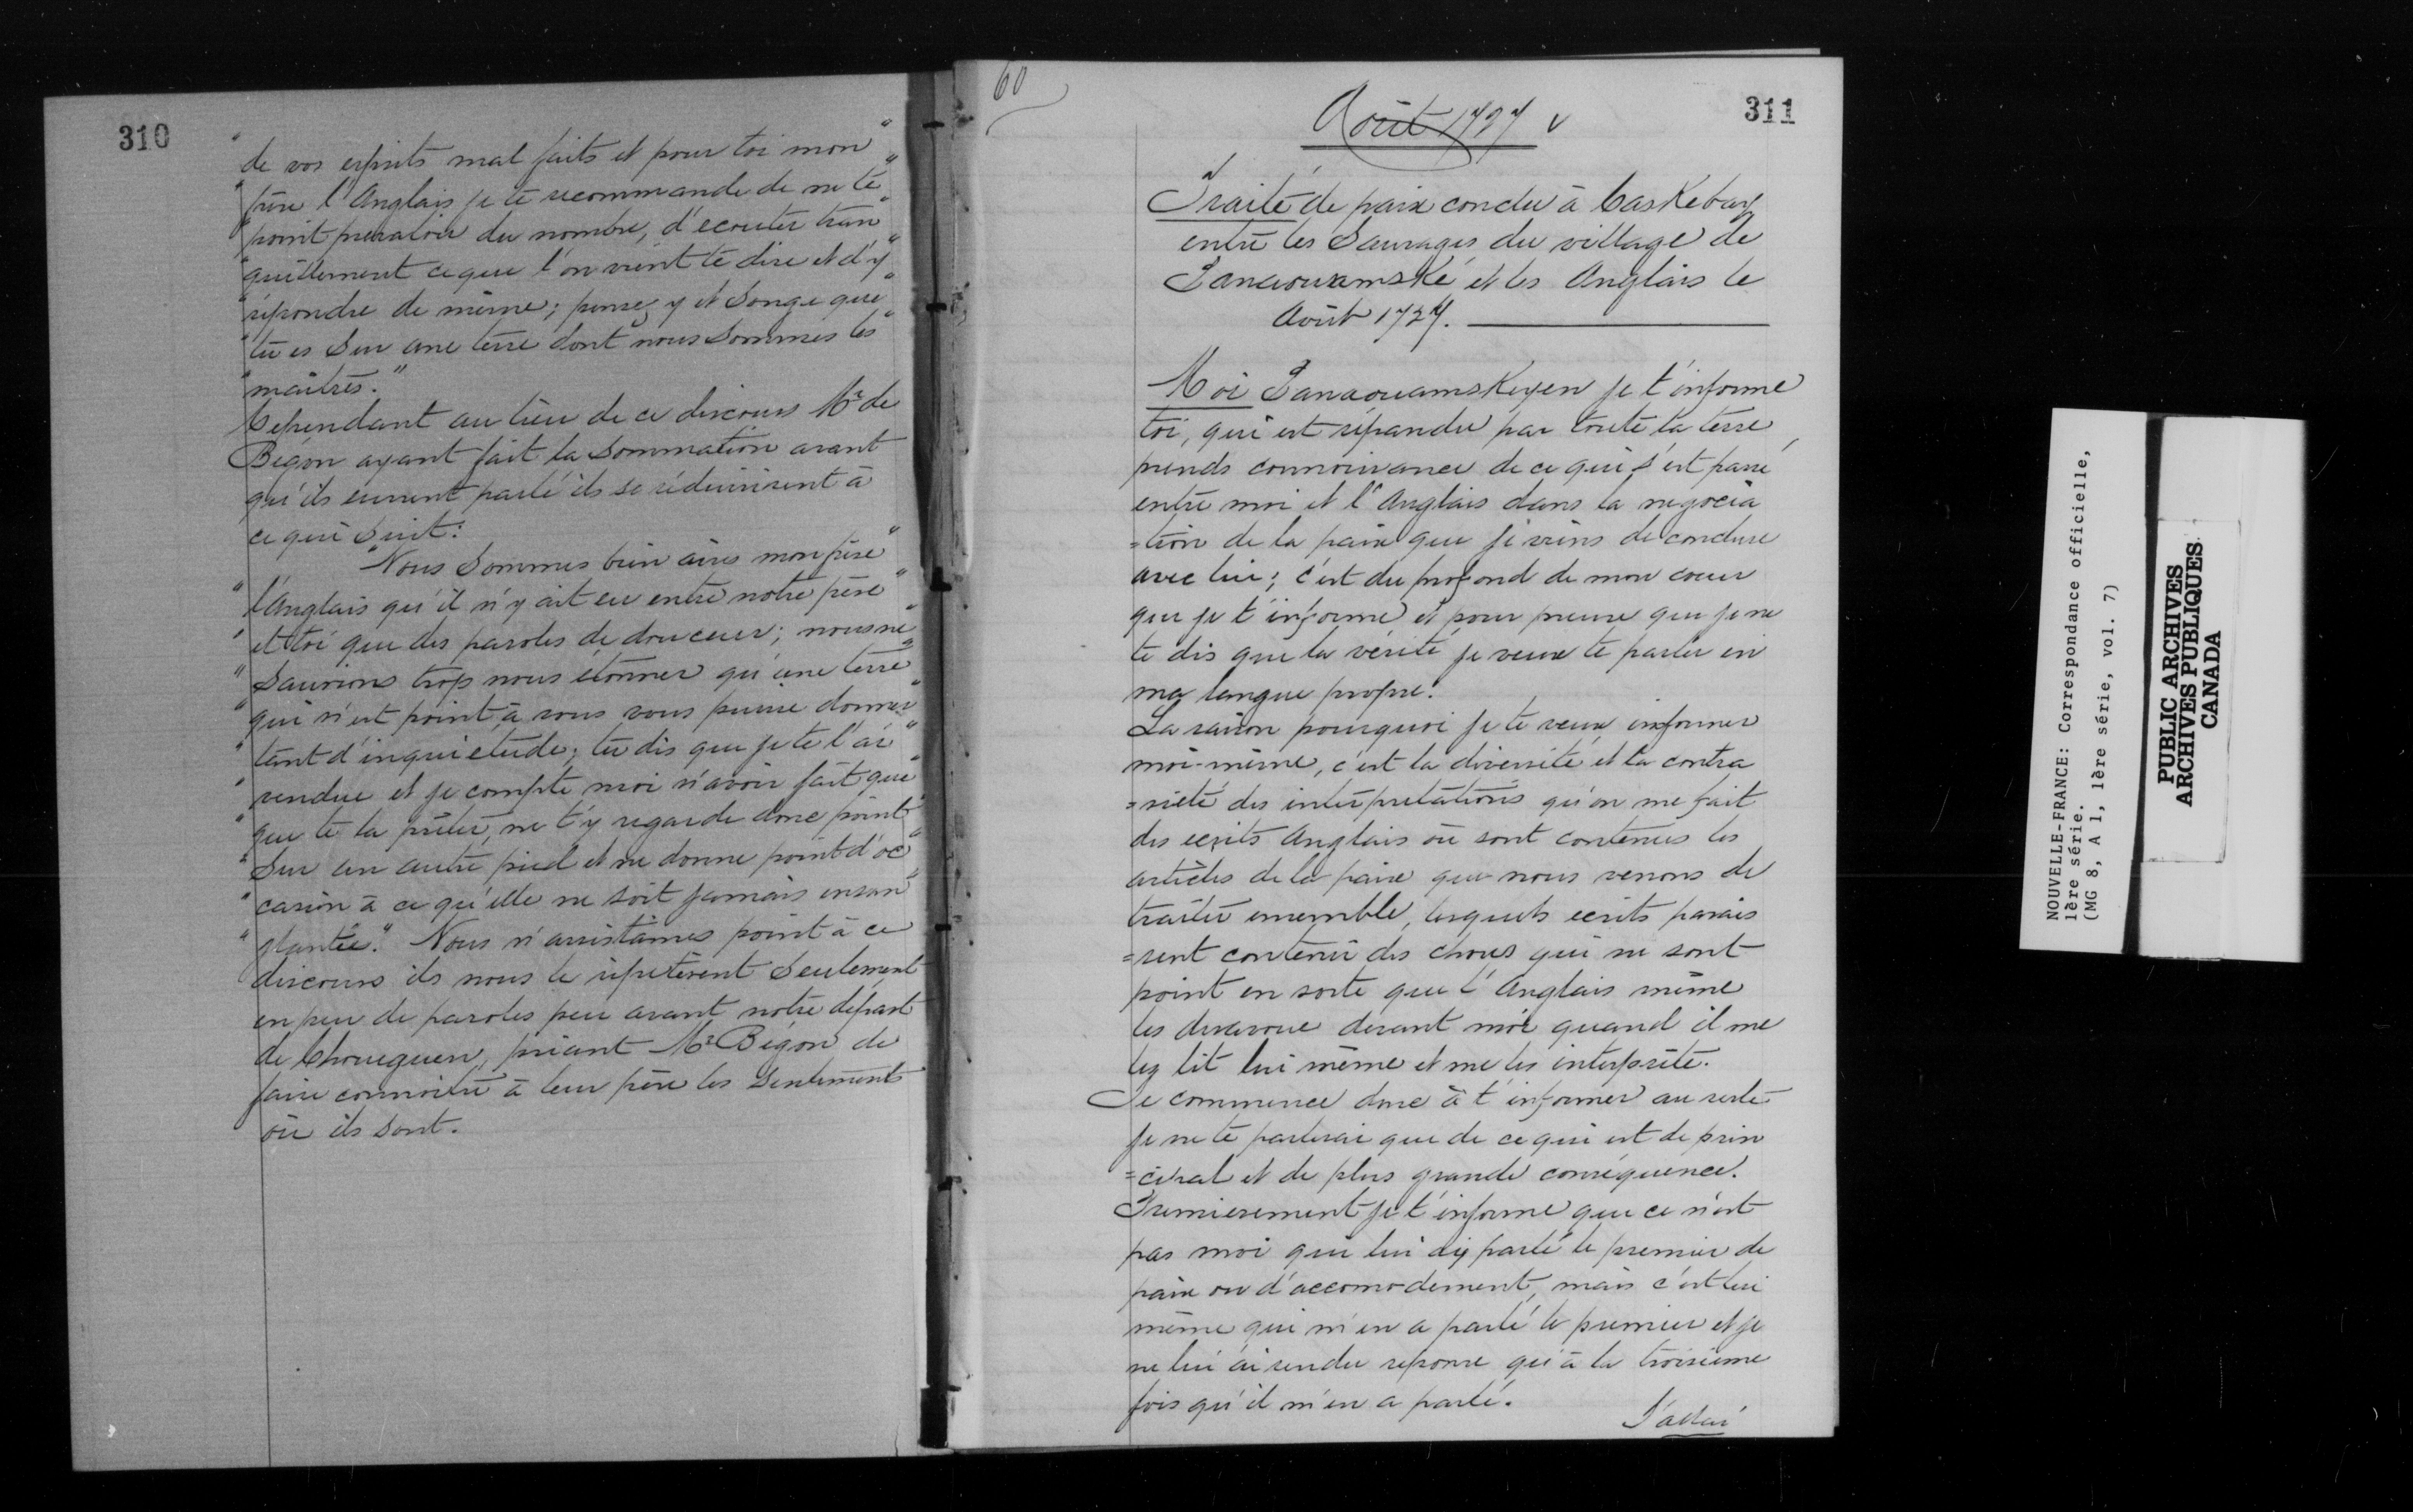 310
" de vos esprits mal faits et pour toi mon "
" frère l'Anglais je te recommande de ne te "
" point prévaloir du nombre, d'ecouter tran "
" quillement ce que l'on vient te dire et d'y "
" répondre de même; pensez y et songe que "
" tu es sur une terre dont nous sommes les "
" maîtres."
Cependant au lieu de ce discours Mr de
Bégon ayant fait la sommation avant
qu'ils eussent parlé ils se réduisirent à
ce qui suit:
"Nous sommes bien aises mon frère "
" l'Anglais qu'il n'y ait eu entre notre père "
" et toi que des paroles de douceur; nous ne "
" saurions trop nous étonner qu'une terre "
" qui n'est point à vous vous puisse donner "
" tant d'inquietude; tu dis que je te l'ai "
" vendue et je compte moi n'avoir fait que "
" que te la prêter, ne t'y regarde donc point "
" sur un autre pied et ne donne point d'oc "
" casion à ce qu'elle ne soit jamais ensan "
" glantée." Nous n'assistâmes point à ce
discours ils nous le répetèrent seulement
en peu de paroles peu avant notre départ
de Choueguen, priant Mr Bégon de
faire connoitre à leur père les sentiments
où ils sont.
60
311
Août 1727 v
Traité de paix conclu à Caskebay
entre les Sauvages du village de
Panaouamské et les Anglais le
Août 1727.
Moi Panaouamskeyen je t'informe
toi, qui est répandu par toute la terre,
prends connoissance de ce qui s'est passé
entre moi et l'Anglais dans la negocia
=tion de la paix que je viens de conclure
avec lui; c'est du profond de mon coeur
que je t'informe et pour preuve que je ne
te dis que la vérité je veux te parler en
ma langue propre.
La raison pourquoi je te veux informer
moi-même, c'est la diversité et la contra
=riété des interprétations qu'on me fait
des ecrits Anglais où sont contenus les
articles de la paix que nous venons de
traiter ensemble, lesquels ecrits parais
=sent contenir des choses qui ne sont
point en sorte que l'Anglais même
les desavoue devant moi quand il me
les lit lui même et me les interprète.
Je commence donc à t'informer au reste
je ne te parlerai que de ce qui est de prin
=cipal et de plus grande conséquence.
Premierement je t'informe que ce n'est
pas moi qui lui ay parlé le premier de
paix ou d'accomodement, mais c'est lui
même qui m'en a parlé le premier et je
ne lui ai rendu reponse qu'à la troisieme
fois qu'il m'en a parlé.
J'allai
NOUVELLE-FRANCE: Correspondance officielle,
1ère série.
(MG 8, A 1, 1ère série, vol. 7)
PUBLIC ARCHIVES
ARCHIVES PUBLIQUES
CANADA